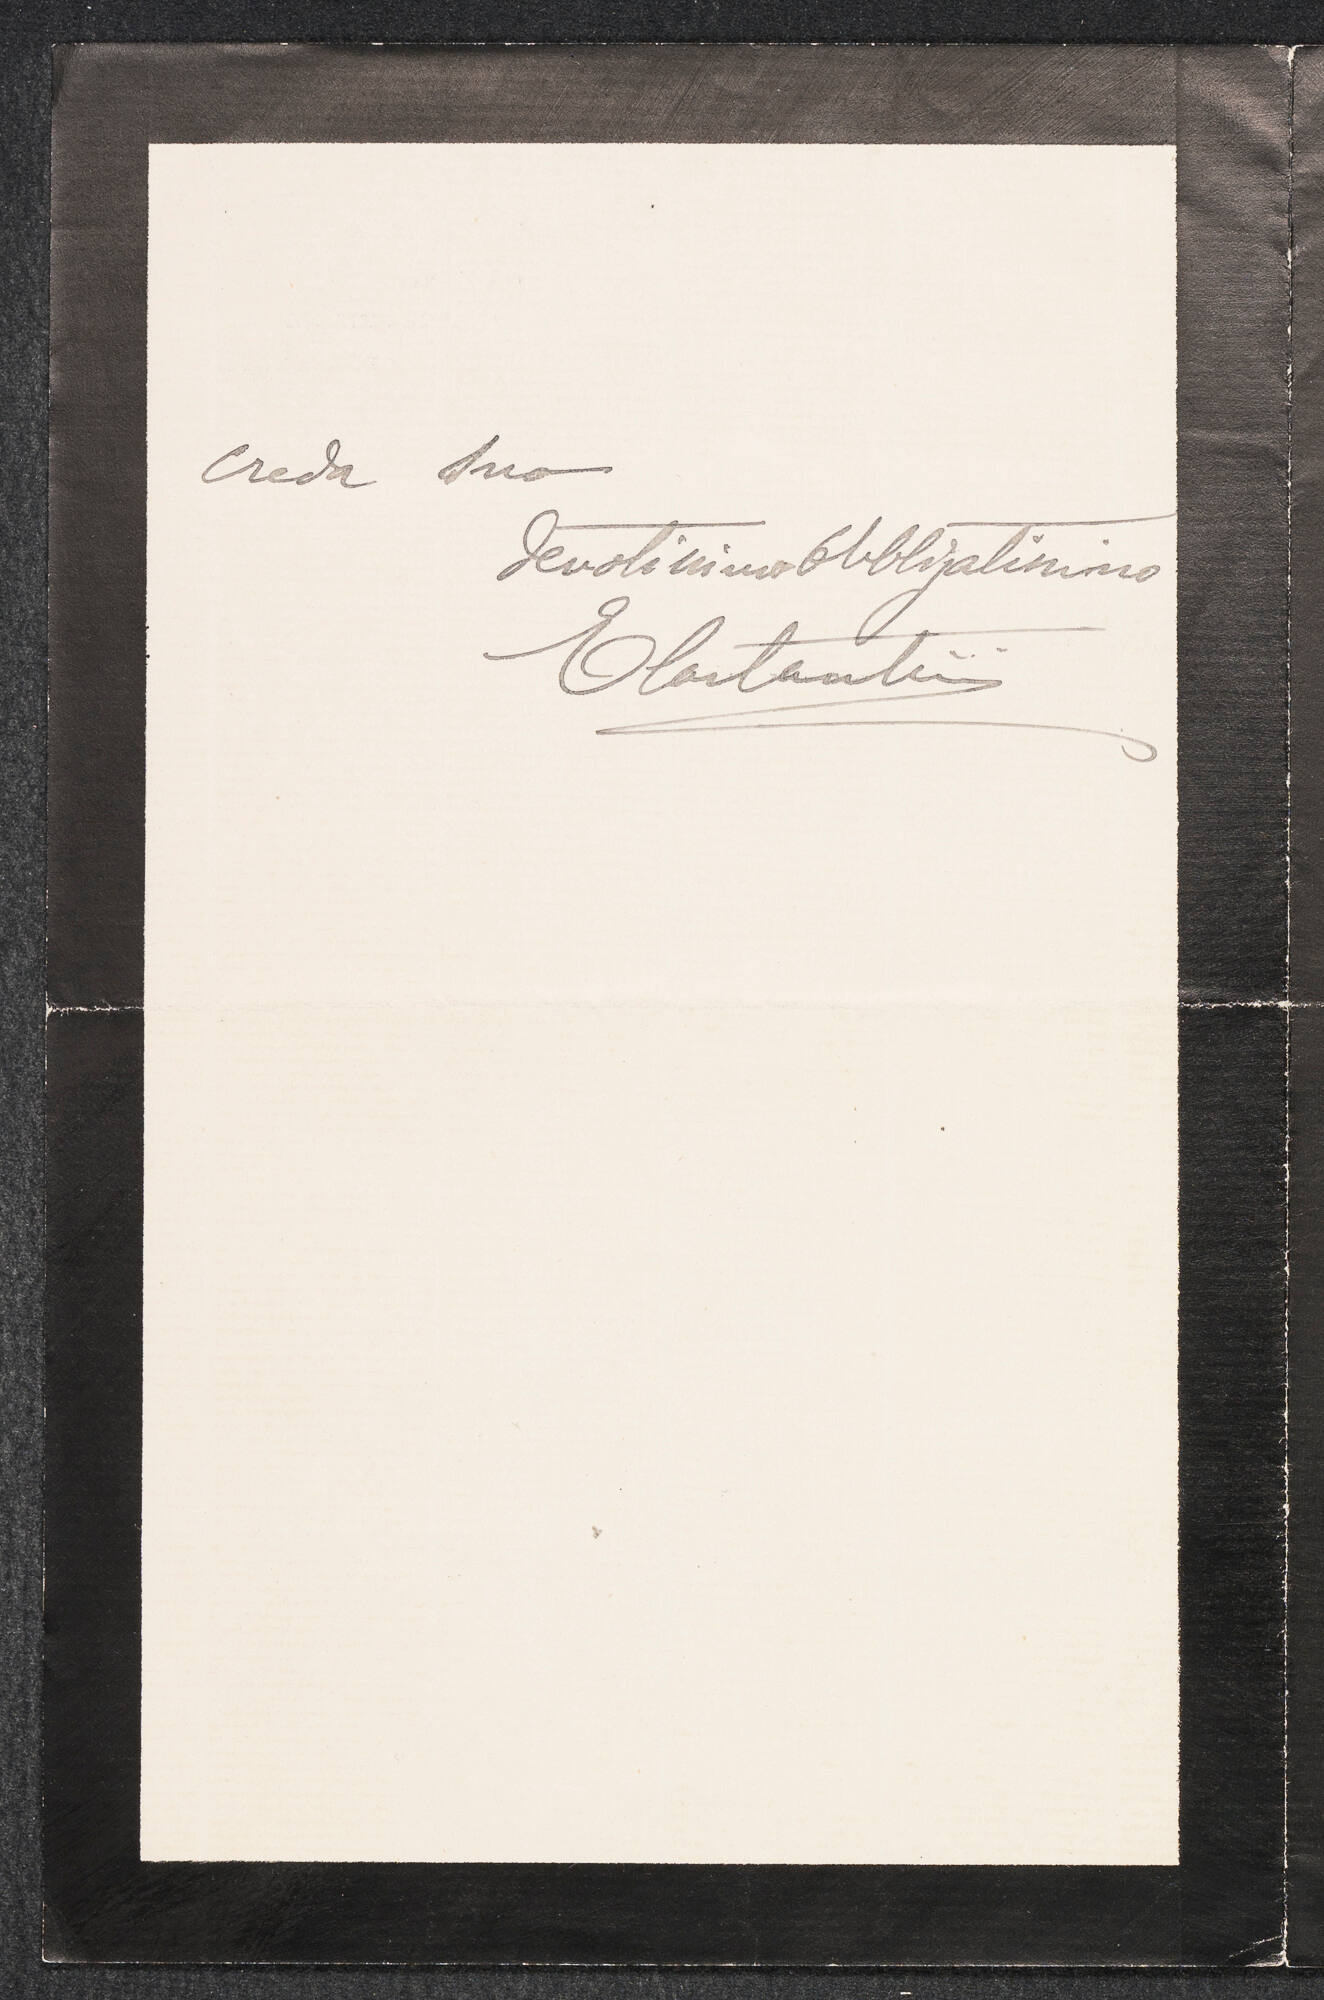 creda suo
devotissimo obbligatissimo
ECostantini